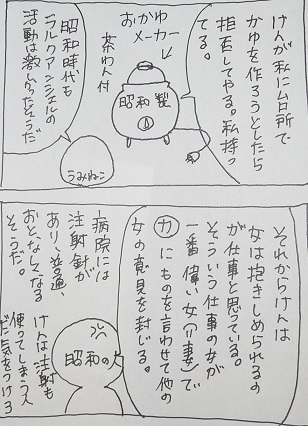 けんが私に台所で
かゆを作ろうとしたら
拒否してやる。私持っ
てる。
おかゆ
メーカー
茶わん付
昭和製
昭和時代も
ラルクアンシエルの
活動は激しかったそうだ
うみねこ
それからけんは
女は抱きしめられるの
が仕事と思っている。
そういう仕事の女が
一番偉い女(1妻)で
カにものを言わせて他の
女の意見を封じる。
病院には
注射針が
あり、普通、
おとなしくなる
そうだ。
昭和の犬
けんは注射も
使ってしまう人
だ気をつけろ